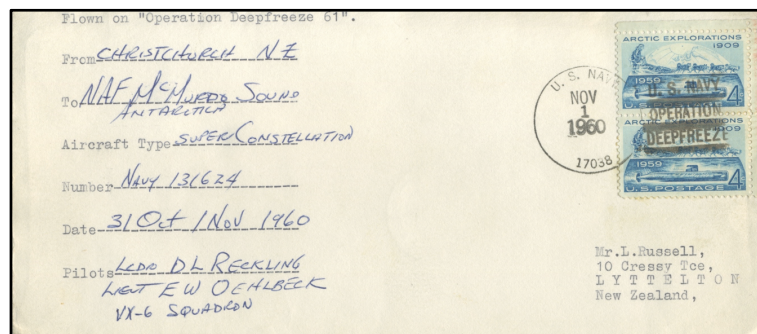 Flown on "Operation Deepfreeze 61".
From CHRISTCHURCH NZ
To NAF McMURDO SOUND
ANTARCTICA
Aircraft Type SUPER CONSTELLATION
Number NAVY 131624
Date 31 Oct / Nov 1960
Pilots LCDR D L RECKLING
LIEUT E W OEHLBECK
VX-6 SQUADRON
U. S. NAVY
NOV
1
1960
17038
ARCTIC EXPLORATIONS
1909
1959
4¢
U.S. POSTAGE
U. S. NAVY
OPERATION
DEEPFREEZE
ARCTIC EXPLORATIONS
1909
1959
4¢
U.S. POSTAGE
Mr.L.Russell,
10 Cressy Tce,
LYTTELTON
New Zealand,